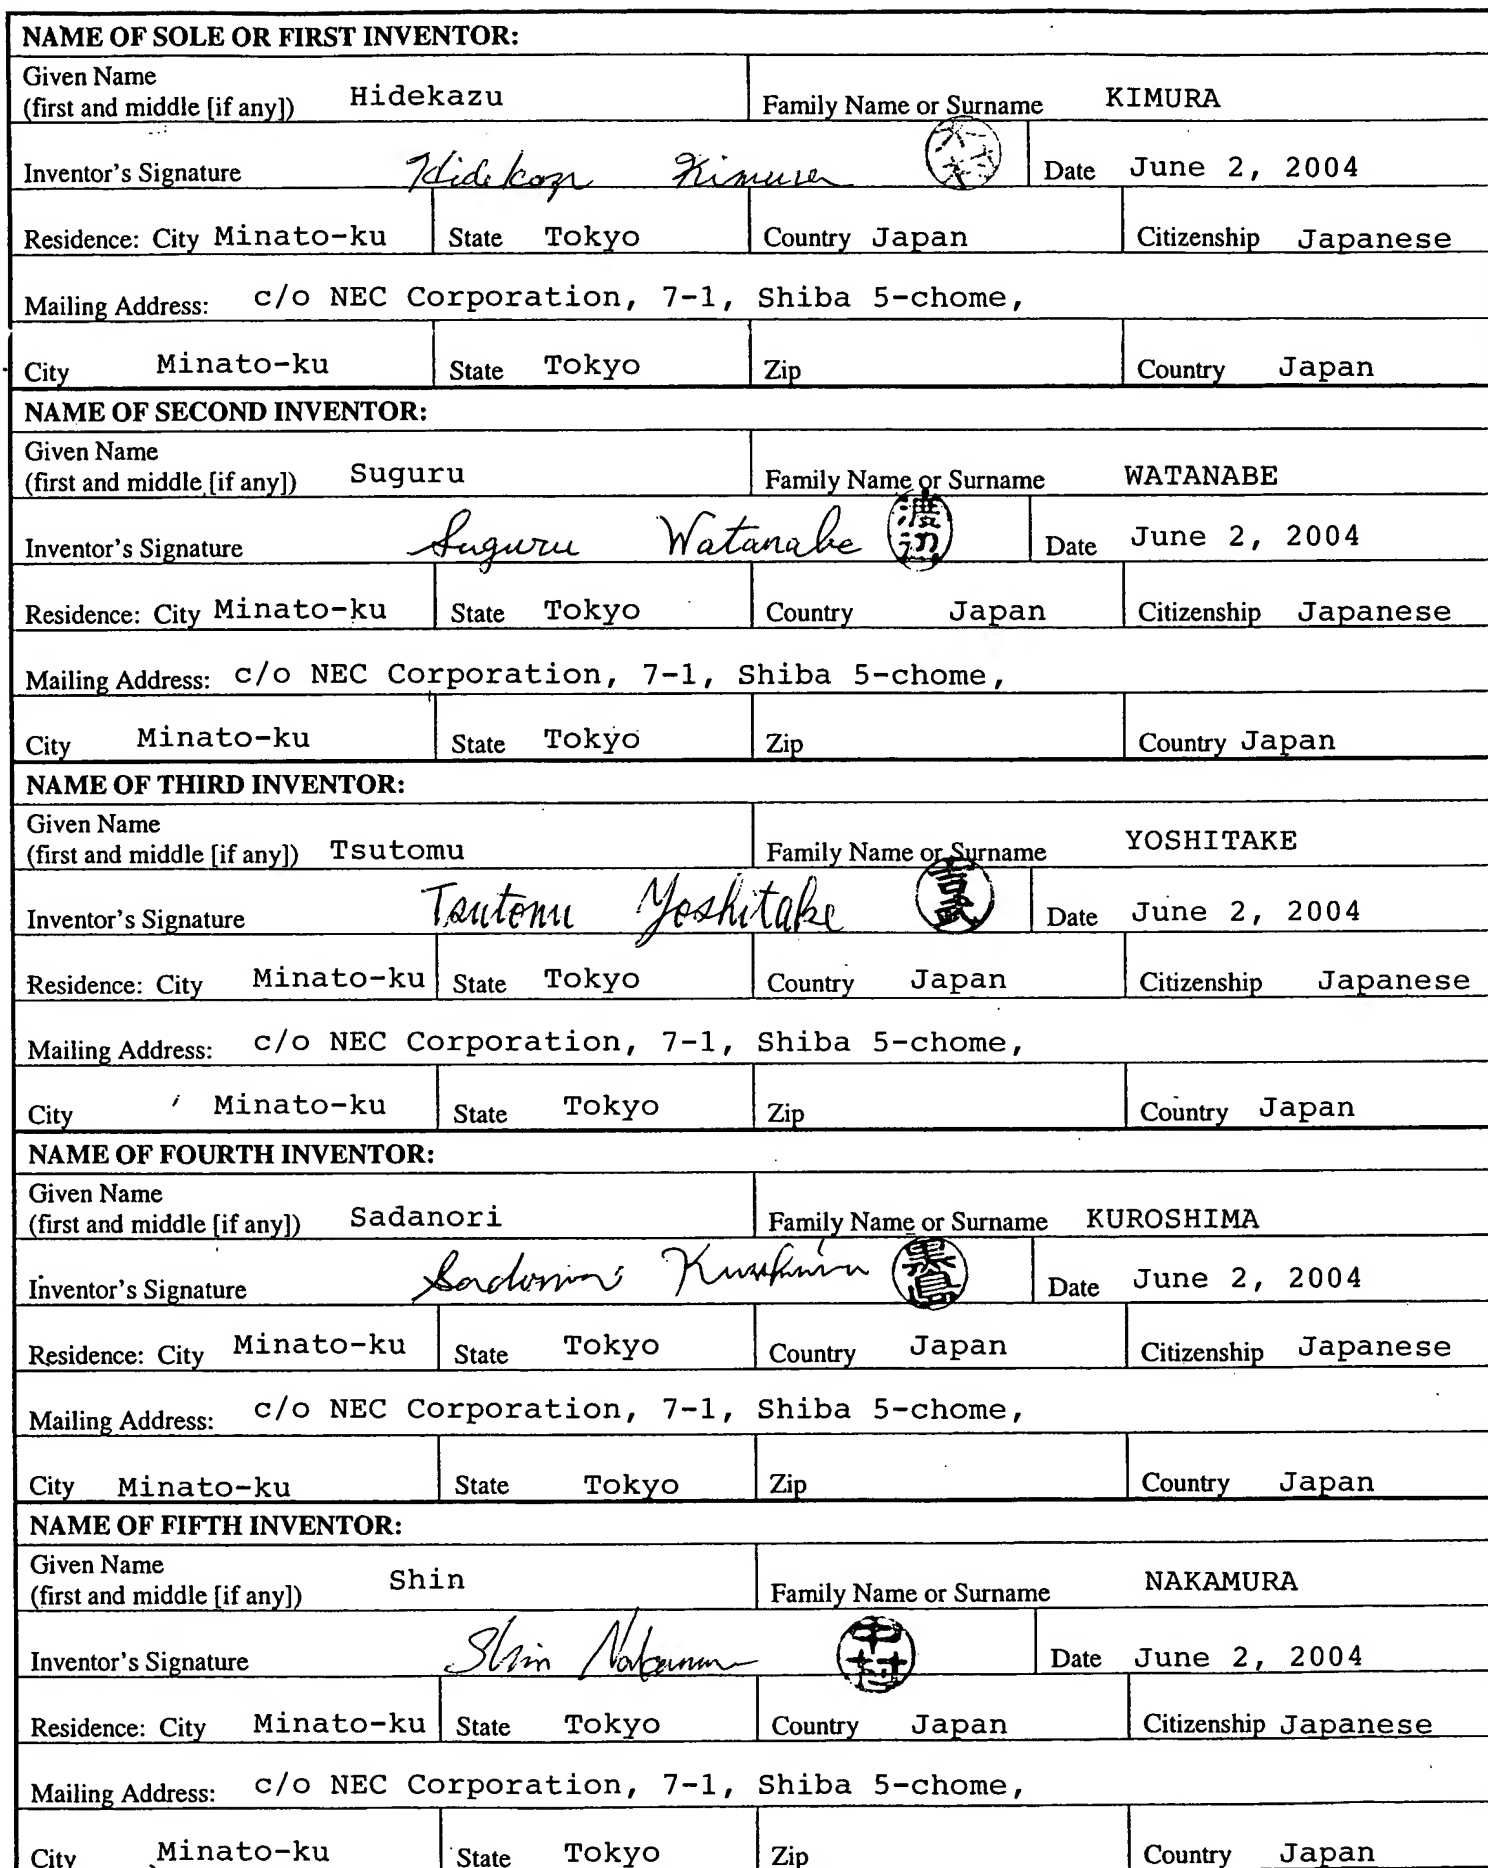 NAME OF SOLE OR FIRST INVENTOR:
Given Name
(first and middle [if any]) Hidekazu Family Name or Surname KIMURA
Inventor's Signature Hidekazu Kimura Date June 2, 2004
Residence: City Minato-ku State Tokyo Country Japan Citizenship Japanese
Mailing Address: c/o NEC Corporation, 7-1, Shiba 5-chome,
City Minato-ku State Tokyo Zip Country Japan
NAME OF SECOND INVENTOR:
Given Name
(first and middle [if any]) Suguru Family Name or Surname WATANABE
Inventor's Signature Suguru Watanabe 渡辺 Date June 2, 2004
Residence: City Minato-ku State Tokyo Country Japan Citizenship Japanese
Mailing Address: c/o NEC Corporation, 7-1, Shiba 5-chome,
City Minato-ku State Tokyo Zip Country Japan
NAME OF THIRD INVENTOR:
Given Name
(first and middle [if any]) Tsutomu Family Name or Surname YOSHITAKE
Inventor's Signature Tsutomu Yoshitake 吉武 Date June 2, 2004
Residence: City Minato-ku State Tokyo Country Japan Citizenship Japanese
Mailing Address: c/o NEC Corporation, 7-1, Shiba 5-chome,
City Minato-ku State Tokyo Zip Country Japan
NAME OF FOURTH INVENTOR:
Given Name
(first and middle [if any]) Sadanori Family Name or Surname KUROSHIMA
Inventor's Signature Sadanori Kuroshima 黒島 Date June 2, 2004
Residence: City Minato-ku State Tokyo Country Japan Citizenship Japanese
Mailing Address: c/o NEC Corporation, 7-1, Shiba 5-chome,
City Minato-ku State Tokyo Zip Country Japan
NAME OF FIFTH INVENTOR:
Given Name
(first and middle [if any]) Shin Family Name or Surname NAKAMURA
Inventor's Signature Shin Nakamura 中村 Date June 2, 2004
Residence: City Minato-ku State Tokyo Country Japan Citizenship Japanese
Mailing Address: c/o NEC Corporation, 7-1, Shiba 5-chome,
City Minato-ku State Tokyo Zip Country Japan